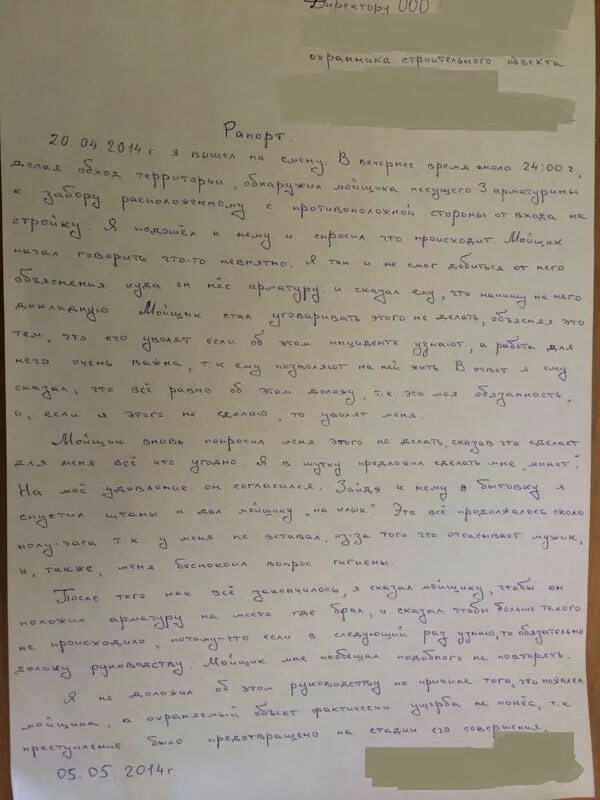 Директору ООО
охранника строительного объекта
Рапорт.
20.04.2014г я вышел на смену. В вечернее время около 24:00 г,
делая обход территории, обнаружил мойщика несущего 3 арматурины
к забору расположенному с противоположной стороны от входа на
стройку. Я подошёл к нему и спросил что происходит. Мойщик
начал говорить что-то невнятно. Я так и не смог добиться от него
объяснения куда он нёс арматуру и сказал ему, что напишу на него
докладную. Мойщик стал уговаривать этого не делать, объясняя это
тем, что его уволят если об этом инциденте узнают, а работа для
него очень важна, т.к ему позволяют на ней жить. В ответ я ему
сказал, что всё равно об этом доложу, т.к. это моя обязанность,
и, если я этого не сделаю, то уволят меня.
Мойщик вновь попросил меня этого не делать, сказав что сделает
для меня всё что угодно. Я в шутку предложил сделать мне „минет".
На моё удивление он согласился. Зайдя к нему в бытовку я
спустил штаны и дал мойщику „на клык". Это всё продолжалось около
полу-часа т.к. у меня не вставал, из-за того что отсасывает мужик,
и, также, меня беспокоил вопрос гигиены.
После того как всё закончилось, я сказал мойщику, чтобы он
положил арматуру на место где брал, и сказал чтобы больше такого
не происходило, потому-что если в следующий раз узнаю, то обязательно
доложу руководству. Мойщик мне пообещал подобного не повторять.
Я не доложил об этом руководству по причине того, что пожалел
мойщика, а охраняемый объект фактически ущерба не понёс, т.к
преступление было предотвращено на стадии его совершения.
05.05.2014г.